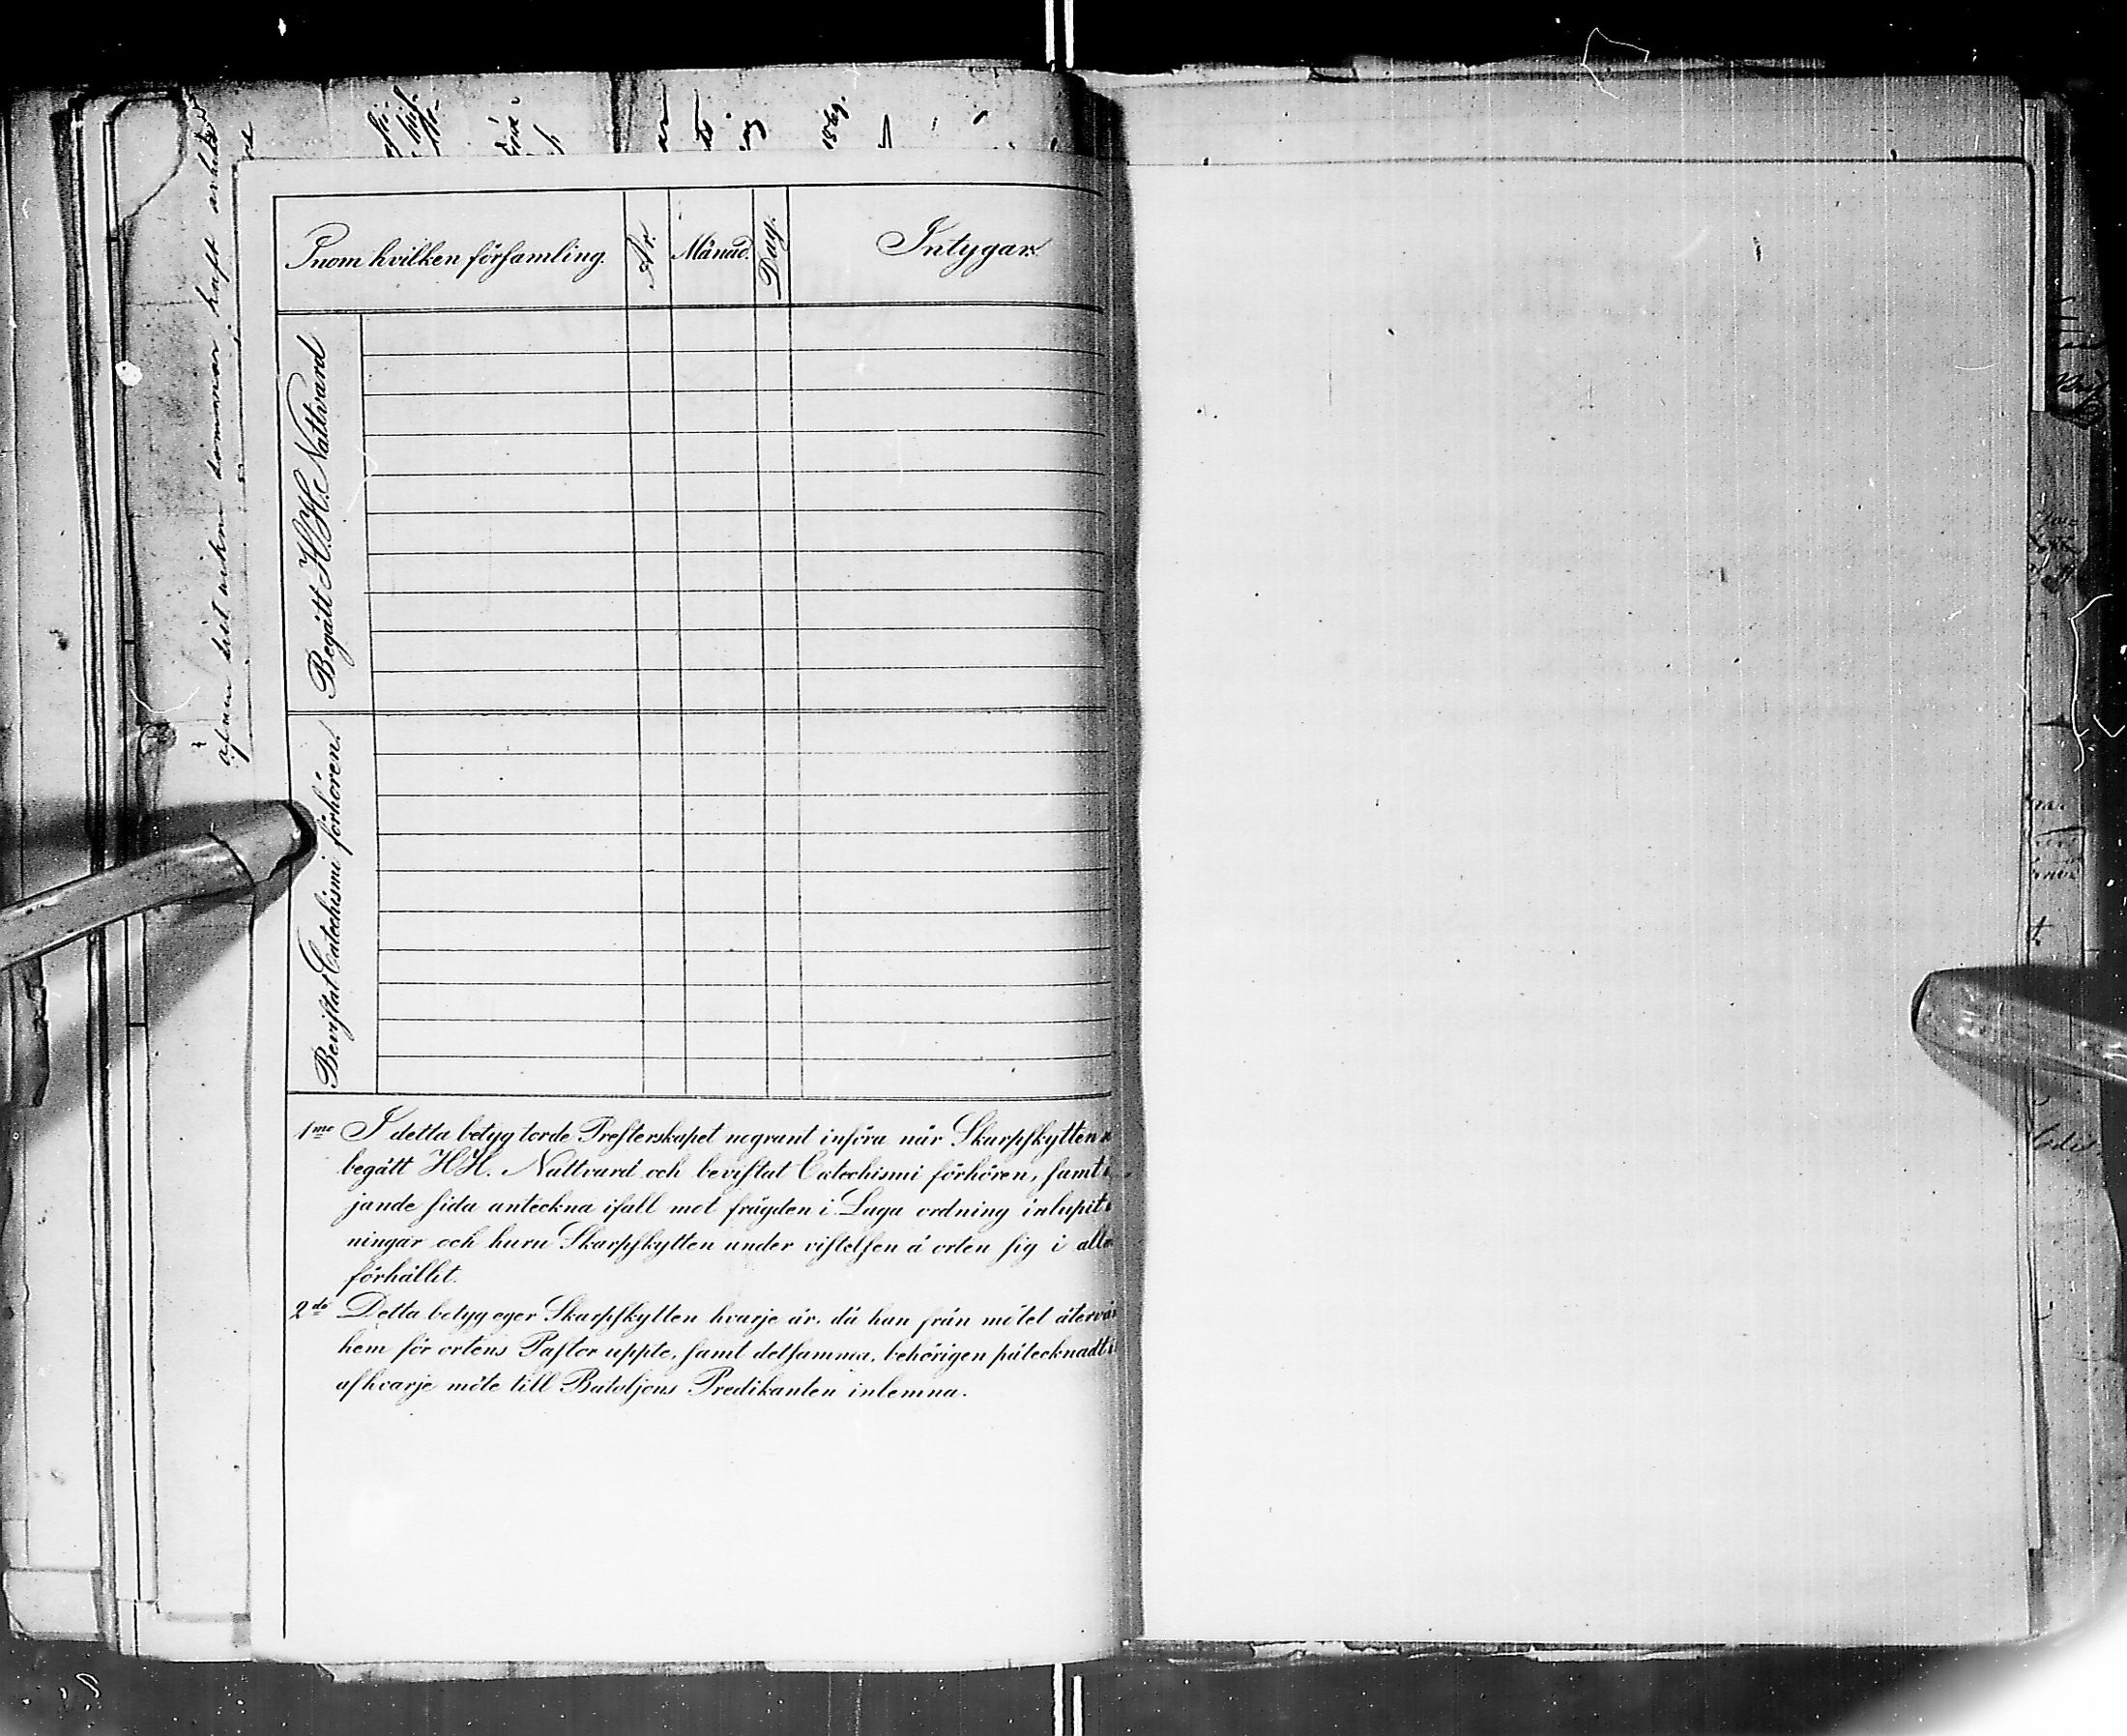 Inom hvilken församling.
År.
Månad.
Dag.
Intygar:
Begått H.H. Nattvard
Bevistat Catechismi förhören.
1mo I detta betyg torde Presterskapet nogrant införa när Skarpskytten
begått H.H. Nattvard och bevistat Catechismi förhören, samt
jande sida anteckna ifall mot frägden i Laga ordning inlupit
ningar och huru Skarpskytten under vistelsen å orten sig i
förhållit.
2do Detta betyg eger Skarpskytten hvarje år, då han från mötet återvä
hem för ortens Pastor uppte, samt detsamma, behörigen påtecknadt
af hvarje möte till Bataljons Predikanten inlemna.
1869.
sommar haft arbete